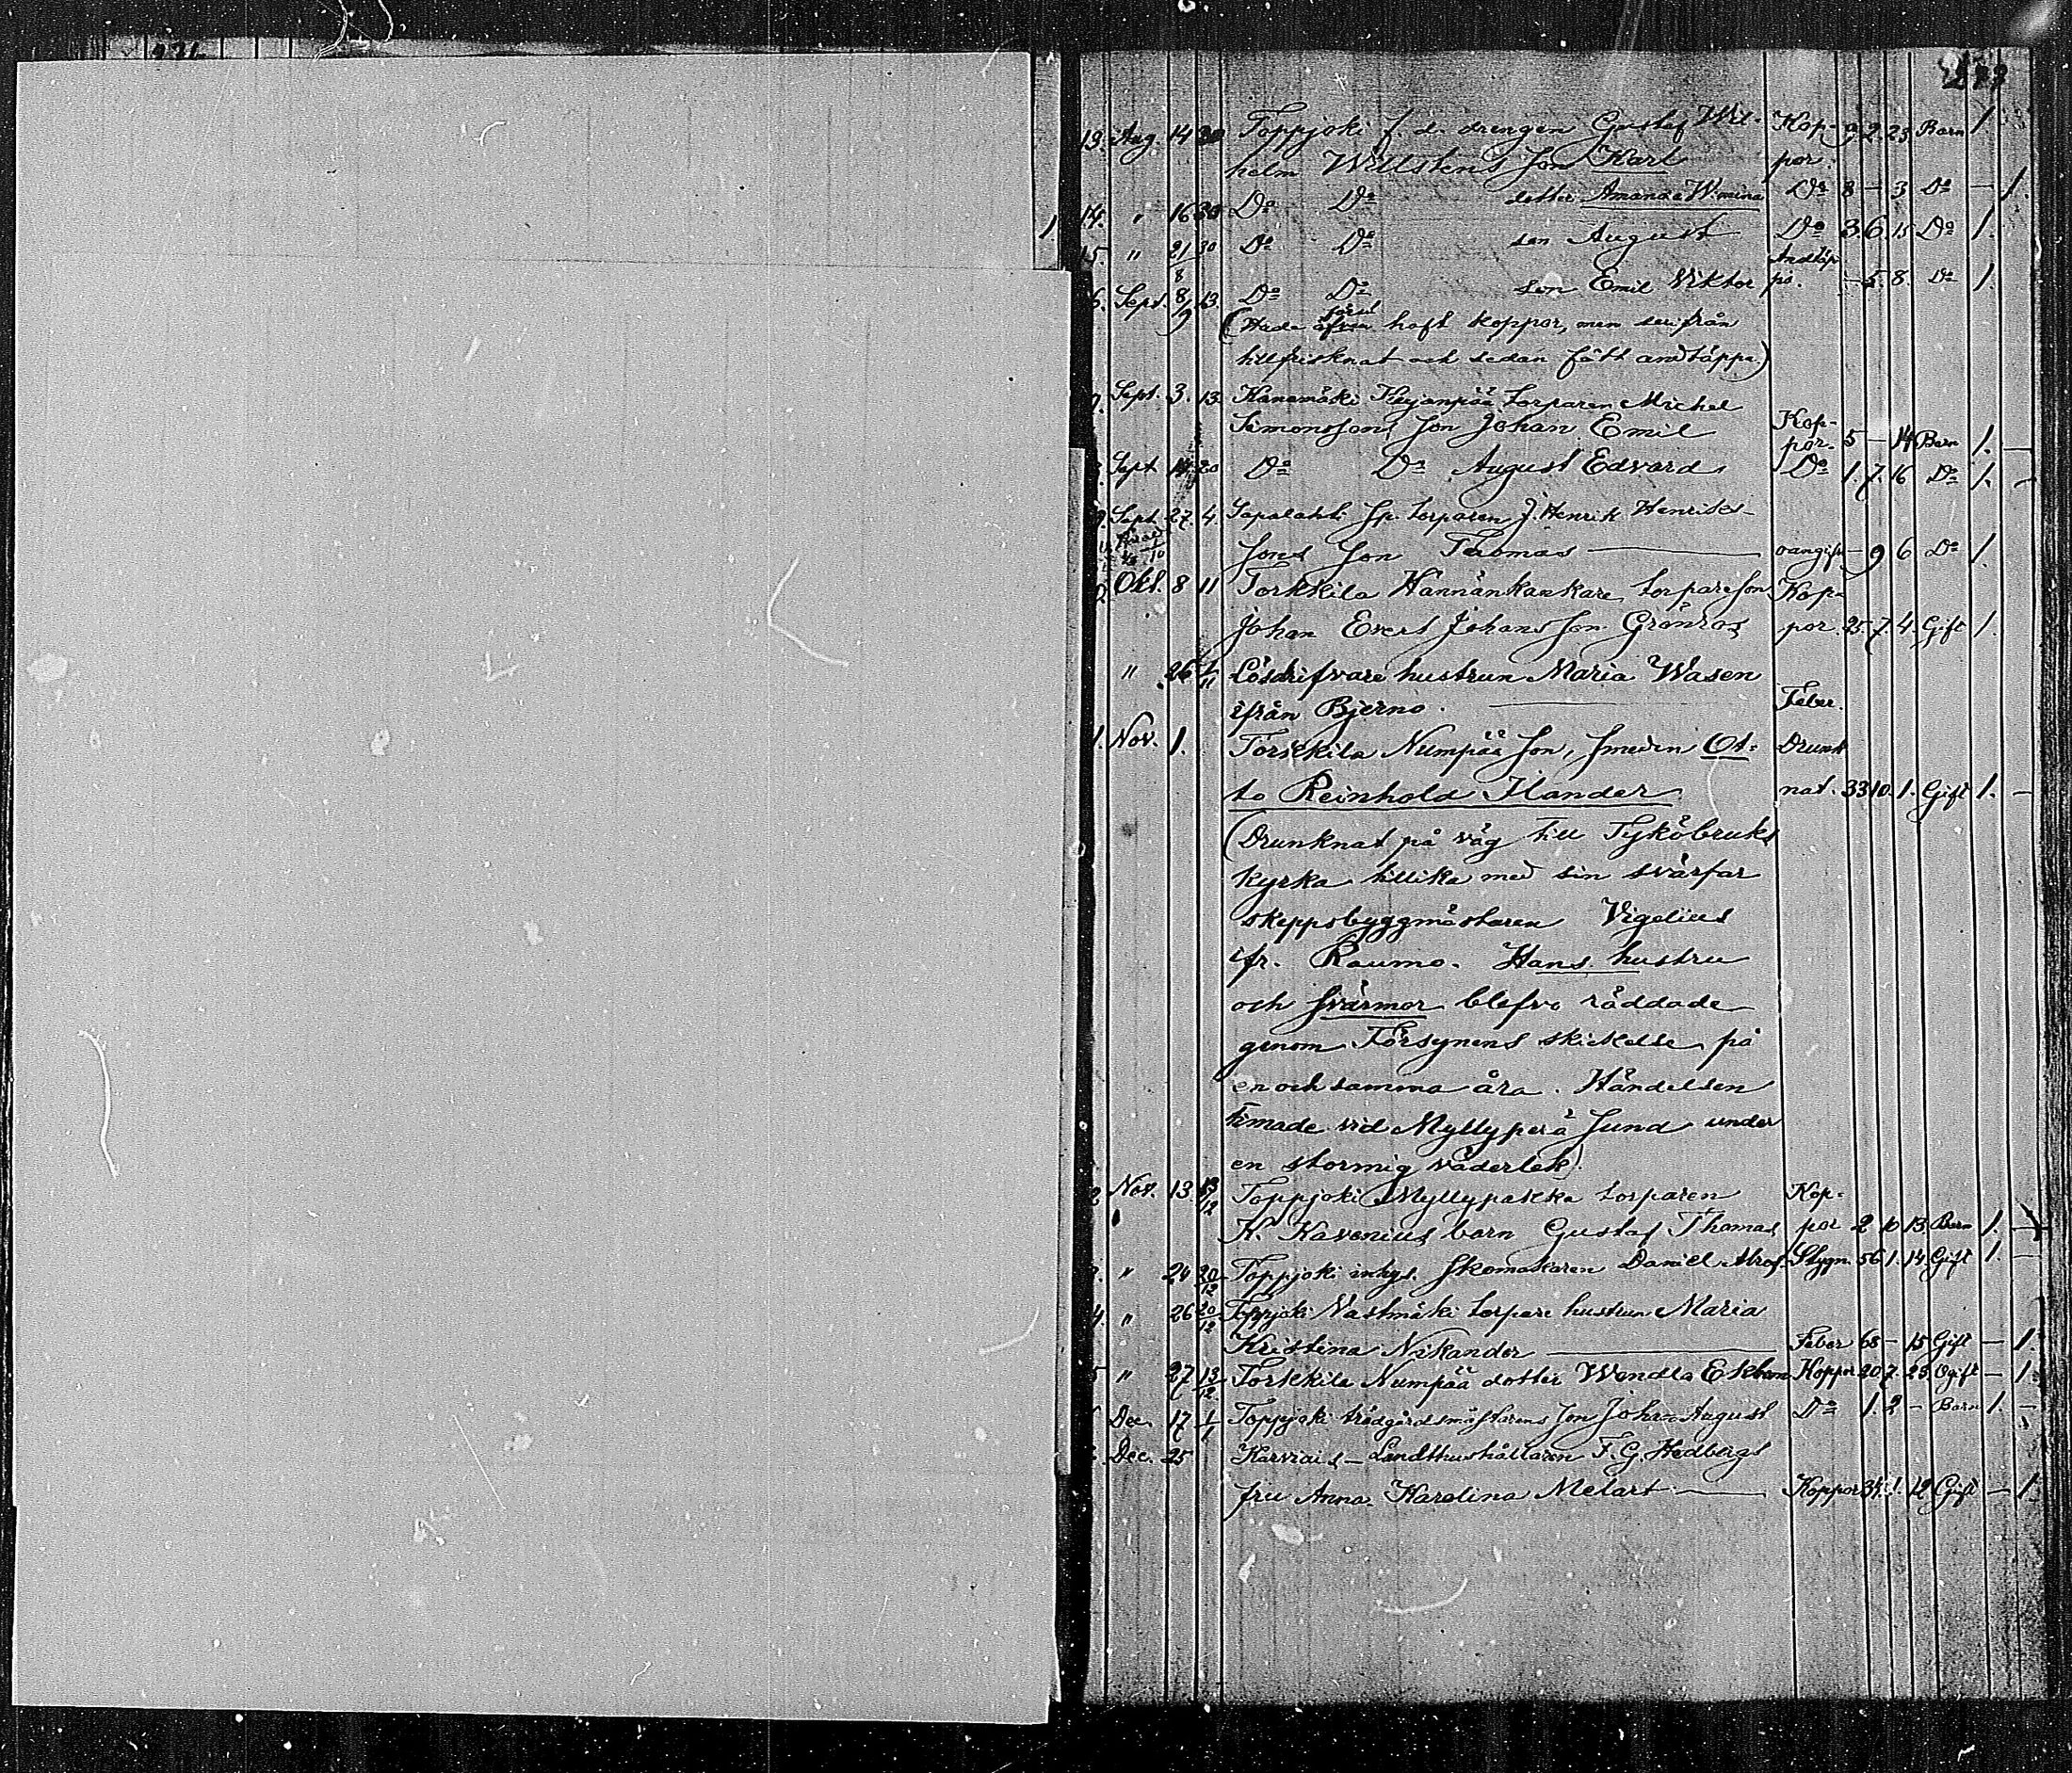 277
13. Aug. 14 30 Toppjoki f. d. drengen Gustaf Wil- Kop- 9 2 23 Barn 1.
helm Willstens Son Karl por.
14. " 16 30 Do Do dotter Amanda W:mina Do 8 — 3 Do — 1.
15. " 21/8 30 Do Do son August Do 3 6 15 Do 1.
Andtäp-
6. Sept. 8/9 13. Do Do son Emil Viktor pa. — 5. 8. Do 1.
(Hade äfven haft koppor, men
tillfrisknat och sedan fått andtäppa)
7. Sept. 3. 13. Torparen Michel
Simonssons Son Johan Emil Kop-
por. 5 — 14 Barn 1. —
Sept 20 Do Do August Edvard Do 1. 7. 16 Do 1. —
9. Sept. 27. 4. torparen J. Henrik Henriks-
sons Son Thomas — oangifv. — 9 6 Do 1.
Okt. 8 11 Torkkila Hännänkaukare torpareson Kop-
Johan Evert Johansson Grönros por. 25. 7. 4. Gift 1.
" 26 1/11 Lösdrifvare hustrun Maria Wasen
ifrån Bjerno. — Feber.
1. Nov. 1. Torkkila Numpää Son, Smeden Ot- Drunk
to Reinhold Ilander nat. 33 10. 1. Gift 1. —
(Drunknat på väg till Tyköbruks
kyrka tillika med sin svärfar
skeppsbyggmästaren Vigelius
ifr. Raumo. Hans hustru
och svärmor blefvo räddade
genom Försynens skickelse på
en och samma åra. Händelsen
timade vid Myllyperä Sund under
en stormig väderlek).
2 Nov. 13. 13/12 Toppjoki Myllypakka torparen Kop-
K. Kavenius barn Gustaf Thomas por 2 10 13. Barn 1. —
3. " 24 20/12 Toppjoki inhys. Skomakaren Daniel Stygn. 56 1. 14. Gift 1. —
4. " 26 20/12 Toppjoki Nastmäki torpare hustrun Maria
Kristina Nikander — Feber 68 — 15 Gift — 1.
5 " 27 13/12 Torkkila Numpää dotter Wendla Ekbom Koppor 20 7. 28 Ogift — 1
Dec. 17 1/1 Toppjoki trädgårdsmästarens Son Johan August Do 1. 2 — Barn 1. —
Dec. 25 Karviais — Landthushållaren F. G. Hedbergs
fru Anna Karolina Melart — Koppor 34. 1. 12 Gift — 1